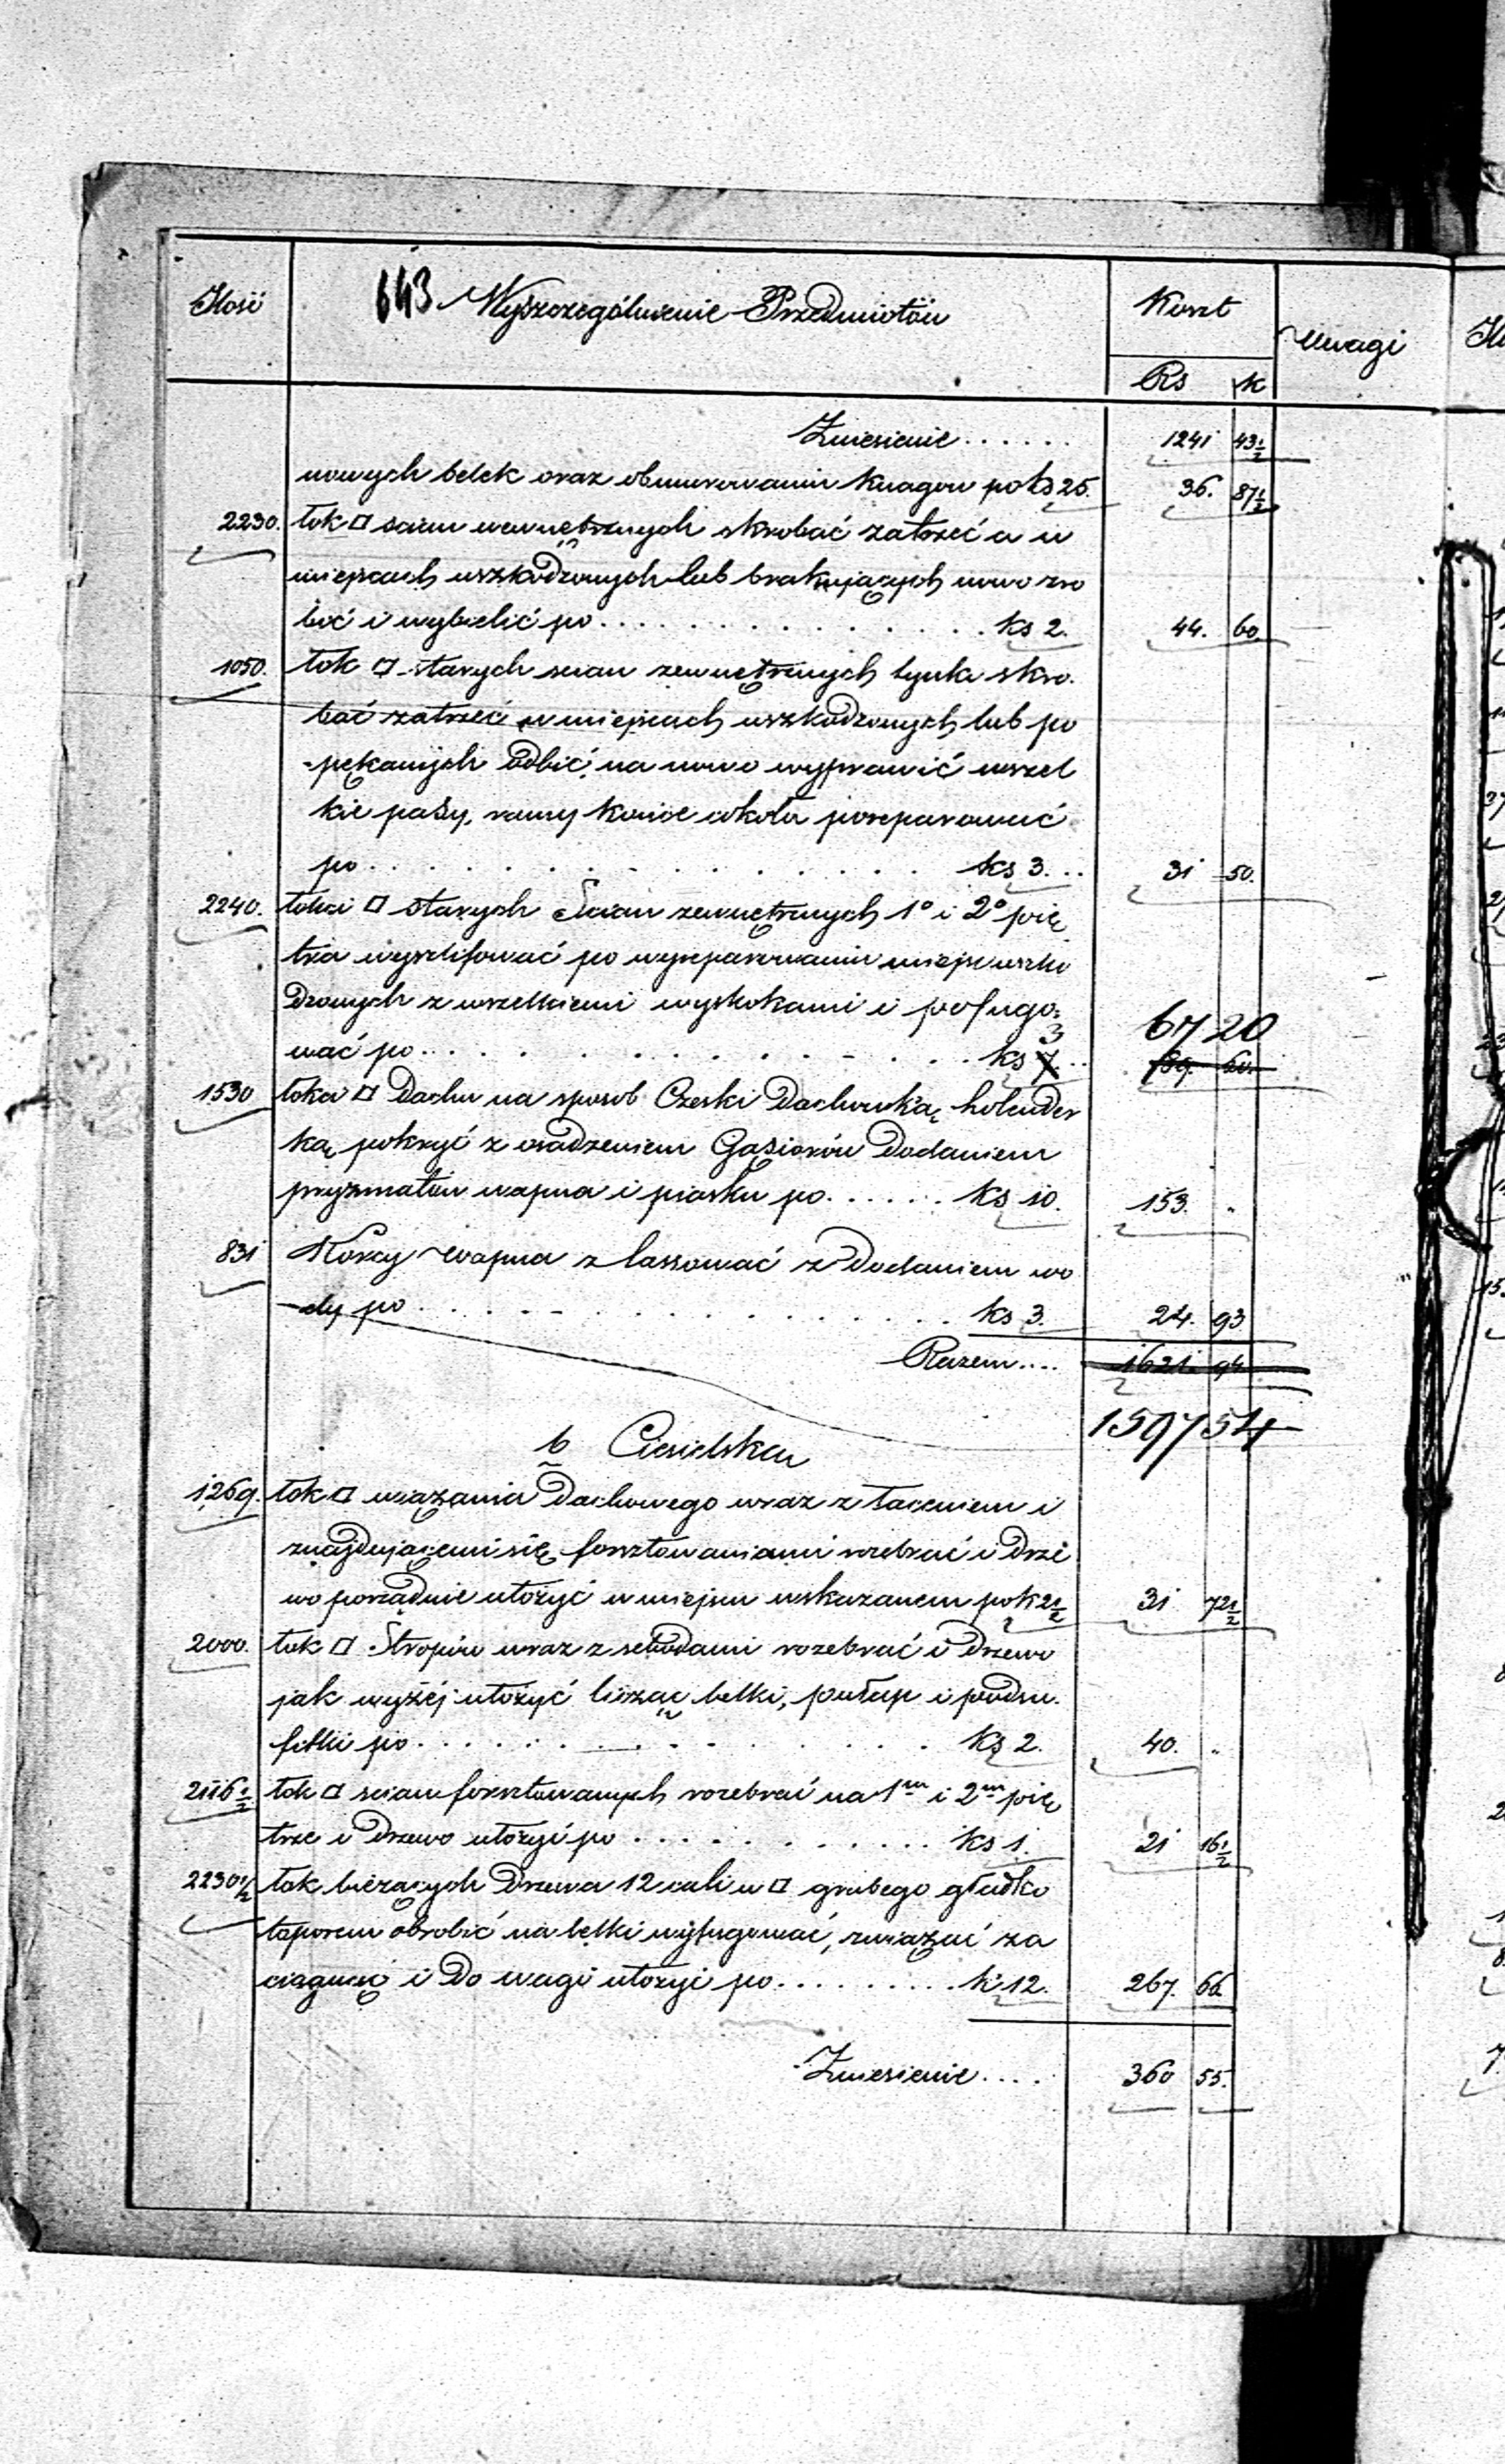 643
Ilość Wyszczególnienie Przedmiotów Koszt Uwagi
Rs k
Zniesienie...... 1241 43½
nowych belek oraz obmurowaniu knagów po ks 25. 36. 87½
2230. łok □ scian wewnętrznych skrobać zatrzeć a w
miejscach uszkodzonych lub brakujących nowo zro
bić i wybielić po............... ks 2. 44. 60.
1050. łok □ starych scian zewnętrznych tynk skro.
bać zatrzeć w miejscach uszkodzonych lub po
-pękanych odbić, na nowo wyprawić wszel
kie pasy, ramy końce cokołu poreparować
po............... ks 3... 31 50.
2240. łokci □ starych Scian zewnętrznych 1° i 2° pię
tra wyszlifować po wyreparowaniu miejsc uszko
dzonych z wszelkiemi wyskokami i pofugo=
wać po............... ks 7. 3 89. 60. 67 20
1530 łokci □ Dachu na sposób Czeski Dachówką holender
ką pokryć z osadzeniem Gąsiorów Dodaniem
pryzmatów wapna i piasku po...... ks 10. 153. "
831 Korcy wapna z lassować z Dodaniem wo
-dy po............... ks 3. 24. 93
Razem.... 1621. 94
1597 54
b Ciesielska
1269. łok □ wiązania Dachowego wraz z łaceniem i
znajdującemi się forsztowaniami rozebrać i Drze
wo porządnie ułożyć w miejscu wskazanem po k 2½ 31 72½
2000. łok □ Stropów wraz z schodami rozebrać i Drzewo
jak wyżej ułożyć licząc belki, pułap i podsu.
fitki po............... ks 2. 40. "
2116½ łok □ scian forsztowanych rozebrać na 1m i 2m pię
trze i Drzewo ułożyć po............ ks 1. 21 16½
2230½ łok bieżących Drzewa 12 cali w □ grubego gładko
toporem obrobić na belki wyfugować, związać za
ciągnąć i Do wagi ułożyć po......... k 12. 267. 66.
Zniesienie.... 360 55.